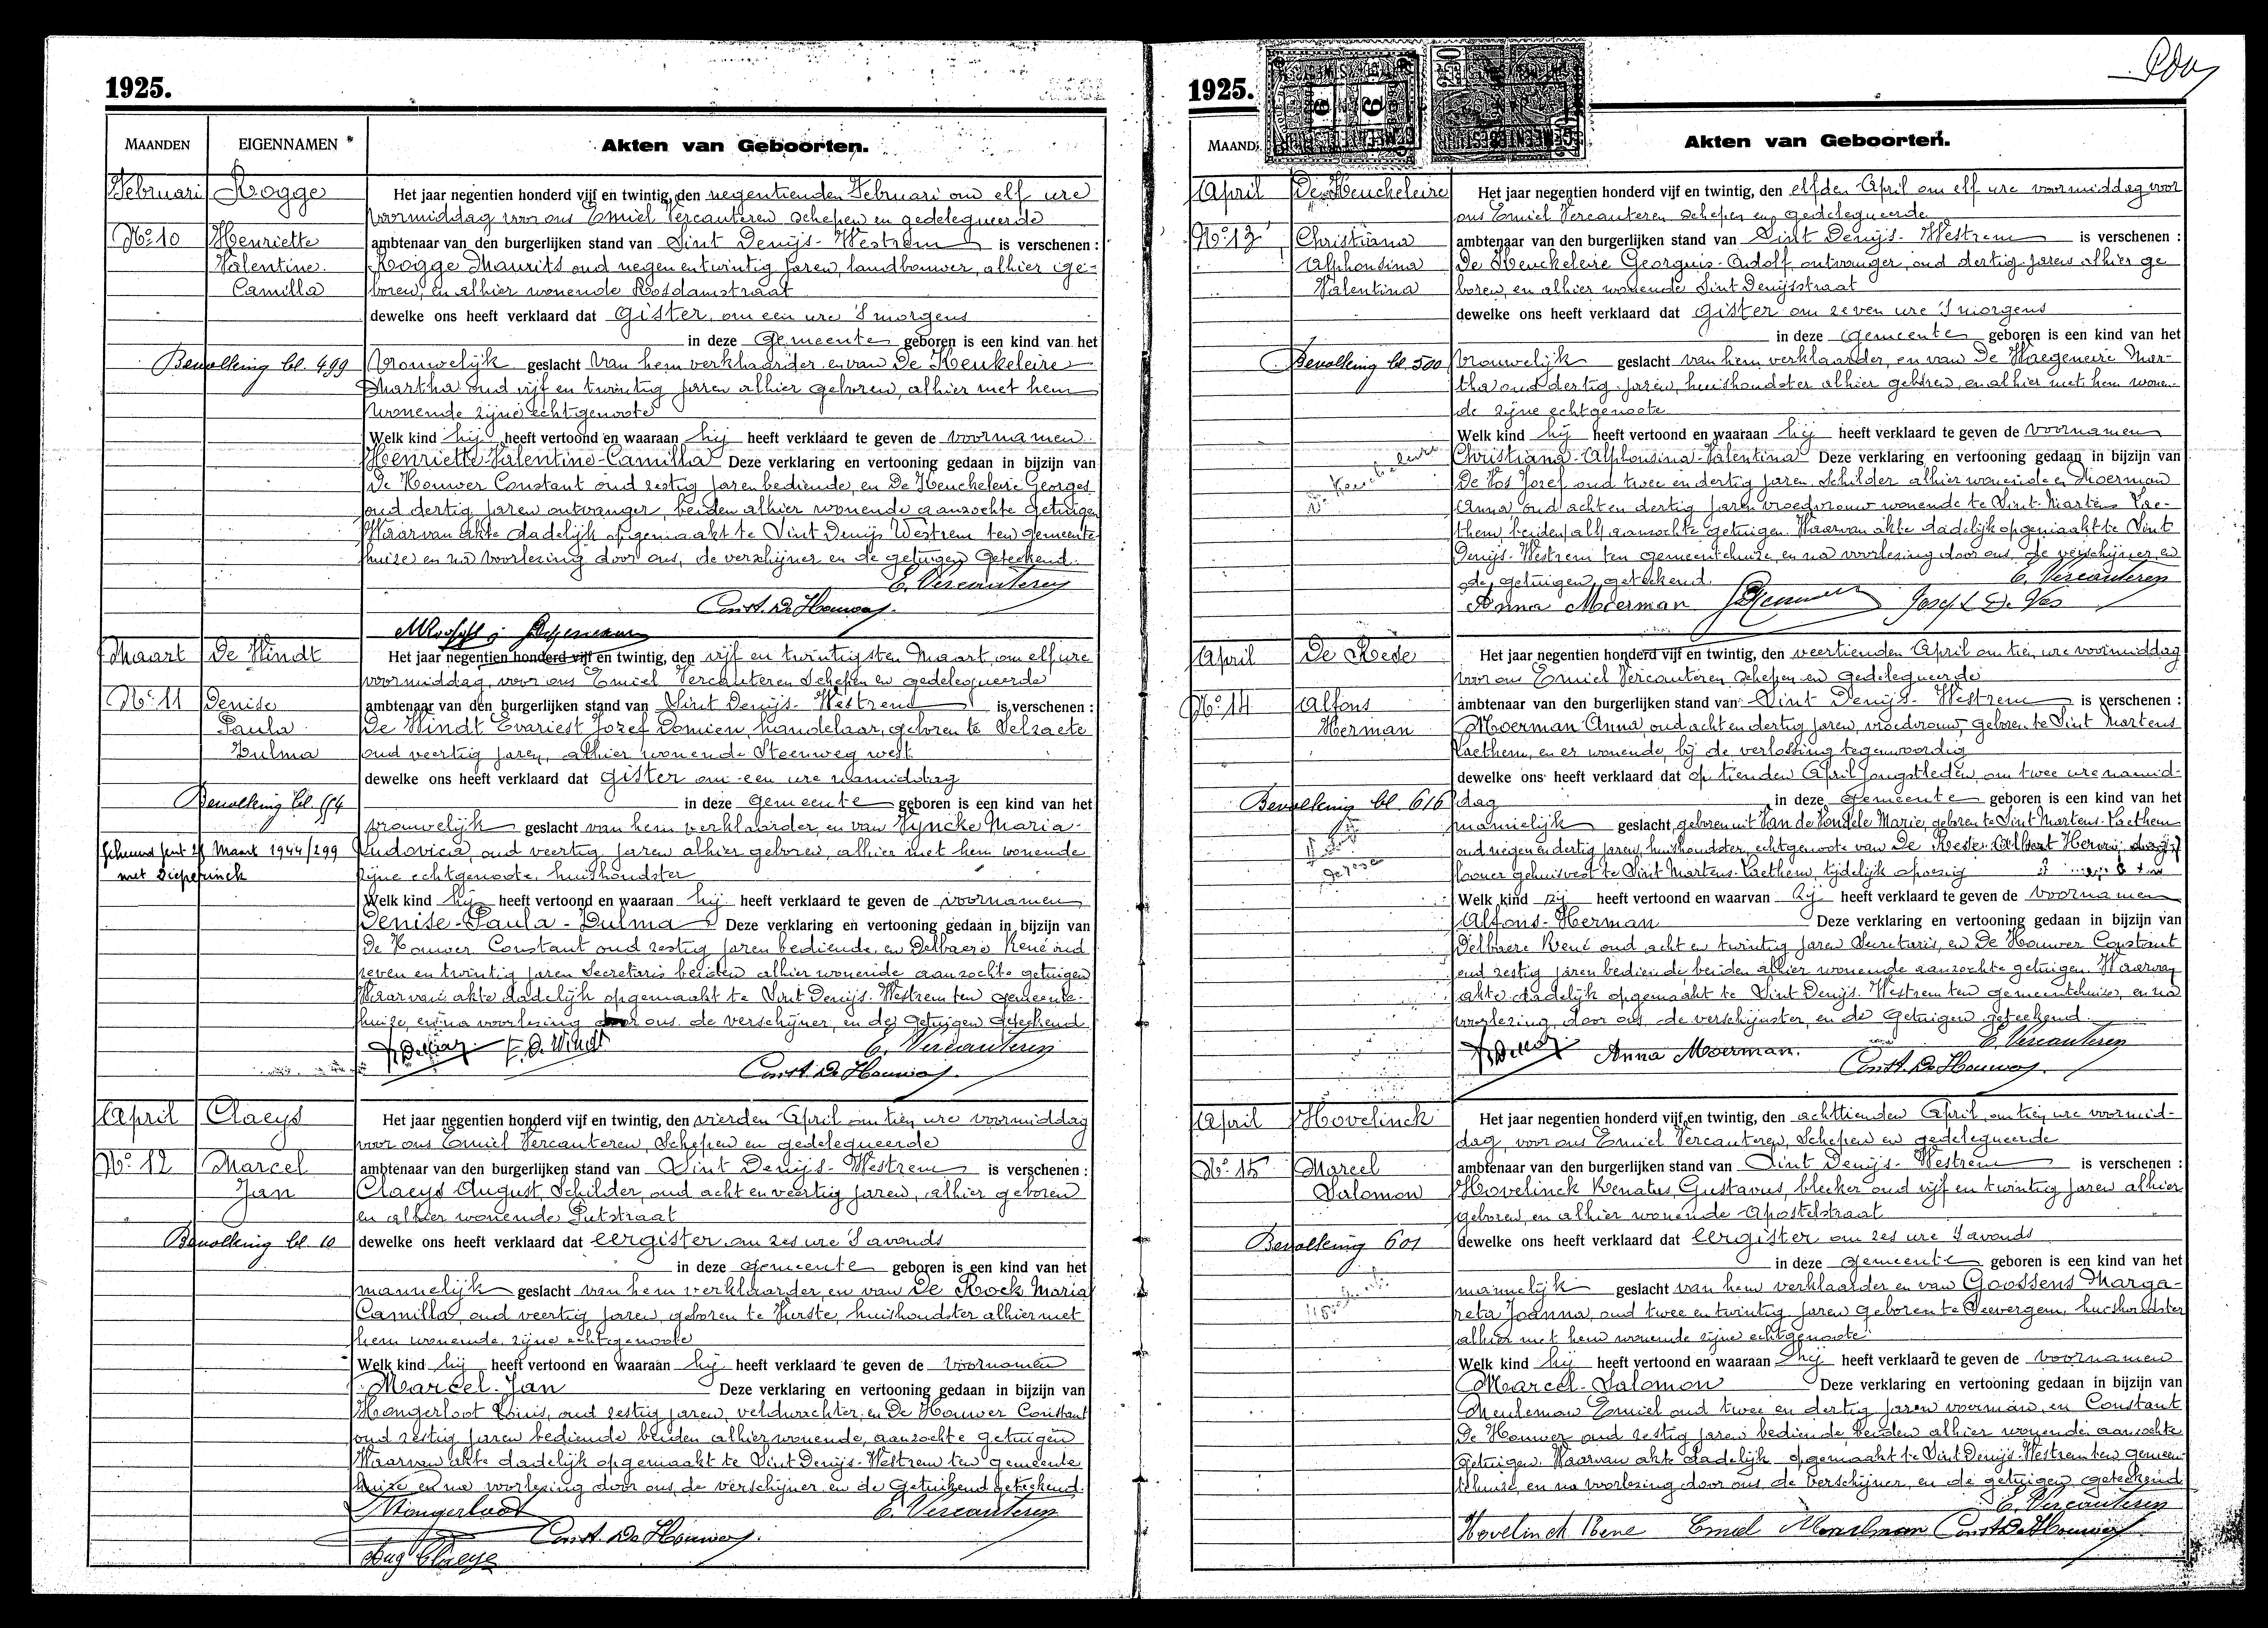 1925.
MAANDEN
EIGENNAMEN
Akten van Geboorten.
Februari
Rogge
Het jaar negentien honderd vijf en twintig, den negentienden Februari om elf ure
voormiddag voor ons Emiel Vercauteren schepen en gedelegueerde
No 10
Henriette
ambtenaar van den burgerlijken stand van Sint Denijs-Westrem is verschenen :
Valentine
Rogge Maurits oud negen en twintig jaren, landbouwer, alhier ge-
Camilla
boren, en alhier wonende Rosdamstraat
dewelke ons heeft verklaard dat gister, om een ure 's morgens
in deze gemeente geboren is een kind van het
Bevolking bl. 499
Vrouwelijk geslacht van hem verklaarder en van De Keukeleire
Martha oud vijf en twintig jaren alhier geboren, alhier met hem
wonende zijne echtgenoote
Welk kind hij heeft vertoond en waaraan hij heeft verklaard te geven de voornamen
Henriette-Valentine-Camilla Deze verklaring en vertooning gedaan in bijzijn van
De Houwer Constant oud zestig jaren bediende, en De Keuckeleire Georges
oud dertig jaren ontvanger, beiden alhier wonende aanzochte getuigen
Waarvan akte dadelijk opgemaakt te Sint Denijs Westrem ten gemeente-
huize en na voorlezing door ons, de verschijner en de getuigen geteekend.
E. Vercauteren
Const. De Houwer
Maart
De Windt
Het jaar negentien honderd vijf en twintig, den vijf en twintigsten Maart, om elf ure
voormiddag, voor ons Emiel Vercauteren Schepen en gedelegueerde
No 11
Denise
ambtenaar van den burgerlijken stand van Sint Denijs-Westrem is verschenen :
Paula
De Windt Evariest Jozef Domien, handelaar, geboren te Selzaete
Zulma
oud veertig jaren, alhier wonende Steenweg west
dewelke ons heeft verklaard dat gister om een ure namiddag
Bevolking bl.
in deze gemeente geboren is een kind van het
vrouwelijk geslacht van hem verklaarder, en van Vyncke Maria-
Gehuwd Gent 25 Maart 1944/299
Ludovica, oud veertig jaren alhier geboren, alhier met hem wonende
met Dieperinck
zijne echtgenoote, huishoudster
Welk kind hij heeft vertoond en waaraan hij heeft verklaard te geven de voornamen
Denise-Paula-Zulma Deze verklaring en vertooning gedaan in bijzijn van
De Houwer Constant oud zestig jaren bediende, en Delbaere René oud
zeven en twintig jaren Secretaris beiden alhier wonende aanzochte getuigen
Waarvan akte dadelijk opgemaakt te Sint Denijs-Westrem ten gemeente-
huize, en na voorlezing door ons de verschijner, en de getuigen geteekend
E. De Windt
E. Vercauteren
Const. De Houwer
April
Claeys
Het jaar negentien honderd vijf en twintig, den vierden April om tien ure voormiddag
voor ons Emiel Vercauteren, Schepen en gedelegueerde
No 12
Marcel
ambtenaar van den burgerlijken stand van Sint Denijs-Westrem is verschenen :
Jan
Claeys August, Schilder, oud acht en veertig jaren, alhier geboren
en alhier wonende Putstraat
Bevolking bl. 10
dewelke ons heeft verklaard dat eergister om zes ure 's avonds
in deze gemeente geboren is een kind van het
mannelijk geslacht van hem verklaarder, en van De Rock Maria
Camilla, oud veertig jaren, geboren te Vurste, huishoudster alhier met
hem wonende, zijne echtgenoote
Welk kind hij heeft vertoond en waaraan hij heeft verklaard te geven de voornamen
Marcel-Jan Deze verklaring en vertooning gedaan in bijzijn van
Hongerloot Louis, oud zestig jaren, veldwachter, en De Houwer Constant
oud zestig jaren bediende beiden alhier wonende, aanzochte getuigen
Waarvan akte dadelijk opgemaakt te Sint Denijs-Westrem ten gemeente
huize en na voorlezing door ons, de verschijner en de Getuikend geteekend.
Hongerloot
E. Vercauteren
Const. De Houwer
Aug Claeys
1925.
MAAND
Akten van Geboorten.
April
De Keuckeleire
Het jaar negentien honderd vijf en twintig, den elfden April om elf ure voormiddag voor
ons Emiel Vercauteren schepen en gedelegueerde
No 13
Christiana
ambtenaar van den burgerlijken stand van Sint Denijs-Westrem is verschenen :
Alphonsina
De Keuckeleire Georguis-Adolf ontvanger, oud dertig jaren alhier ge
Valentina
boren, en alhier wonende Sint Denijsstraat
dewelke ons heeft verklaard dat gister om zeven ure 's morgens
in deze gemeente geboren is een kind van het
Bevolking bl. 500
vrouwelijk geslacht van hem verklaarder, en van De Haegeneire Mar-
tha oud dertig jaren, huishoudster alhier geboren, en alhier met hem wonen-
de zijne echtgenoote
Welk kind hij heeft vertoond en waaraan hij heeft verklaard te geven de voornamen
Christiana-Alphonsina-Valentina Deze verklaring en vertooning gedaan in bijzijn van
De Vos Jozef oud twee en dertig jaren Schilder alhier wonende en Moerman
Anna oud acht en dertig jaren vroedvrouw wonende te Sint-Martens Lae-
them beiden als aanzochte getuigen. Waarvan akte dadelijk opgemaakt te Sint
Denijs-Westrem ten gemeentehuize, en na voorlezing door ons, de verschijner, en
de getuigen, geteekend.
E. Vercauteren
Anna Moerman
Josef De Vos
April
De Rese
Het jaar negentien honderd vijf en twintig, den veertienden April om tien ure voormiddag
voor ons Emiel Vercauteren schepen en gedelegueerde
No 14
Alfons
ambtenaar van den burgerlijken stand van Sint Denijs-Westrem is verschenen :
Herman
Moerman Anna, oud acht en dertig jaren, vroedvrouw, geboren te Sint Martens
Laethem, en er wonende, bij de verlossing tegenwoordig
dewelke ons heeft verklaard dat op tienden April jongstleden, om twee ure namid-
Bevolking bl. 616
dag in deze gemeente geboren is een kind van het
mannelijk geslacht, geboren uit Van de Vondele Marie, geboren te Sint Martens-Laethem
oud negen en dertig jaren, huishoudster, echtgenoote van De Reese Albert Henri,
looner gehuisvest te Sint Martens-Laethem, tijdelijk afwezig
Welk kind zij heeft vertoond en waarvan zij heeft verklaard te geven de voornamen
Alfons-Herman Deze verklaring en vertooning gedaan in bijzijn van
Delbaere René oud acht en twintig jaren Secretaris, en De Houwer Constant
oud zestig jaren bediende beiden alhier wonende aanzochte getuigen. Waarvan
akte dadelijk opgemaakt te Sint Denijs-Westrem ten gemeentehuize, en na
voorlezing, door ons de verschijnster, en de Getuigen geteekend.
E. Vercauteren
Anna Moerman.
Const. De Houwer
April
Hovelinck
Het jaar negentien honderd vijf en twintig, den achttienden April, om tien ure voormid-
dag, voor ons Emiel Vercauteren, Schepen en gedelegueerde
No 15
Marcel
ambtenaar van den burgerlijken stand van Sint Denijs-Westrem is verschenen :
Salomon
Hovelinck Renatus, Gustavus, bleeker oud vijf en twintig jaren alhier
geboren, en alhier wonende Apostelstraat
Bevolking 601
dewelke ons heeft verklaard dat eergister om zes ure 's avonds
in deze gemeente geboren is een kind van het
mannelijk geslacht van hem verklaarder en van Goossens Marga-
reta Joanna, oud twee en twintig jaren geboren te Seevergem, huishoudster
alhier met hem wonende zijne echtgenoote
Welk kind hij heeft vertoond en waaraan hij heeft verklaard te geven de voornamen
Marcel-Salomon Deze verklaring en vertooning gedaan in bijzijn van
Meuleman Emiel oud twee en dertig jaren voerman, en Constant
De Houwer oud zestig jaren bediende, beiden alhier wonende aanzochte
getuigen. Waarvan akte dadelijk opgemaakt te Sint Denijs-Westrem ten gemeen-
tehuize, en na voorlezing door ons de verschijner, en de getuigen, geteekend
E. Vercauteren
Hovelinck Rene Emiel Meuleman Const. De Houwer